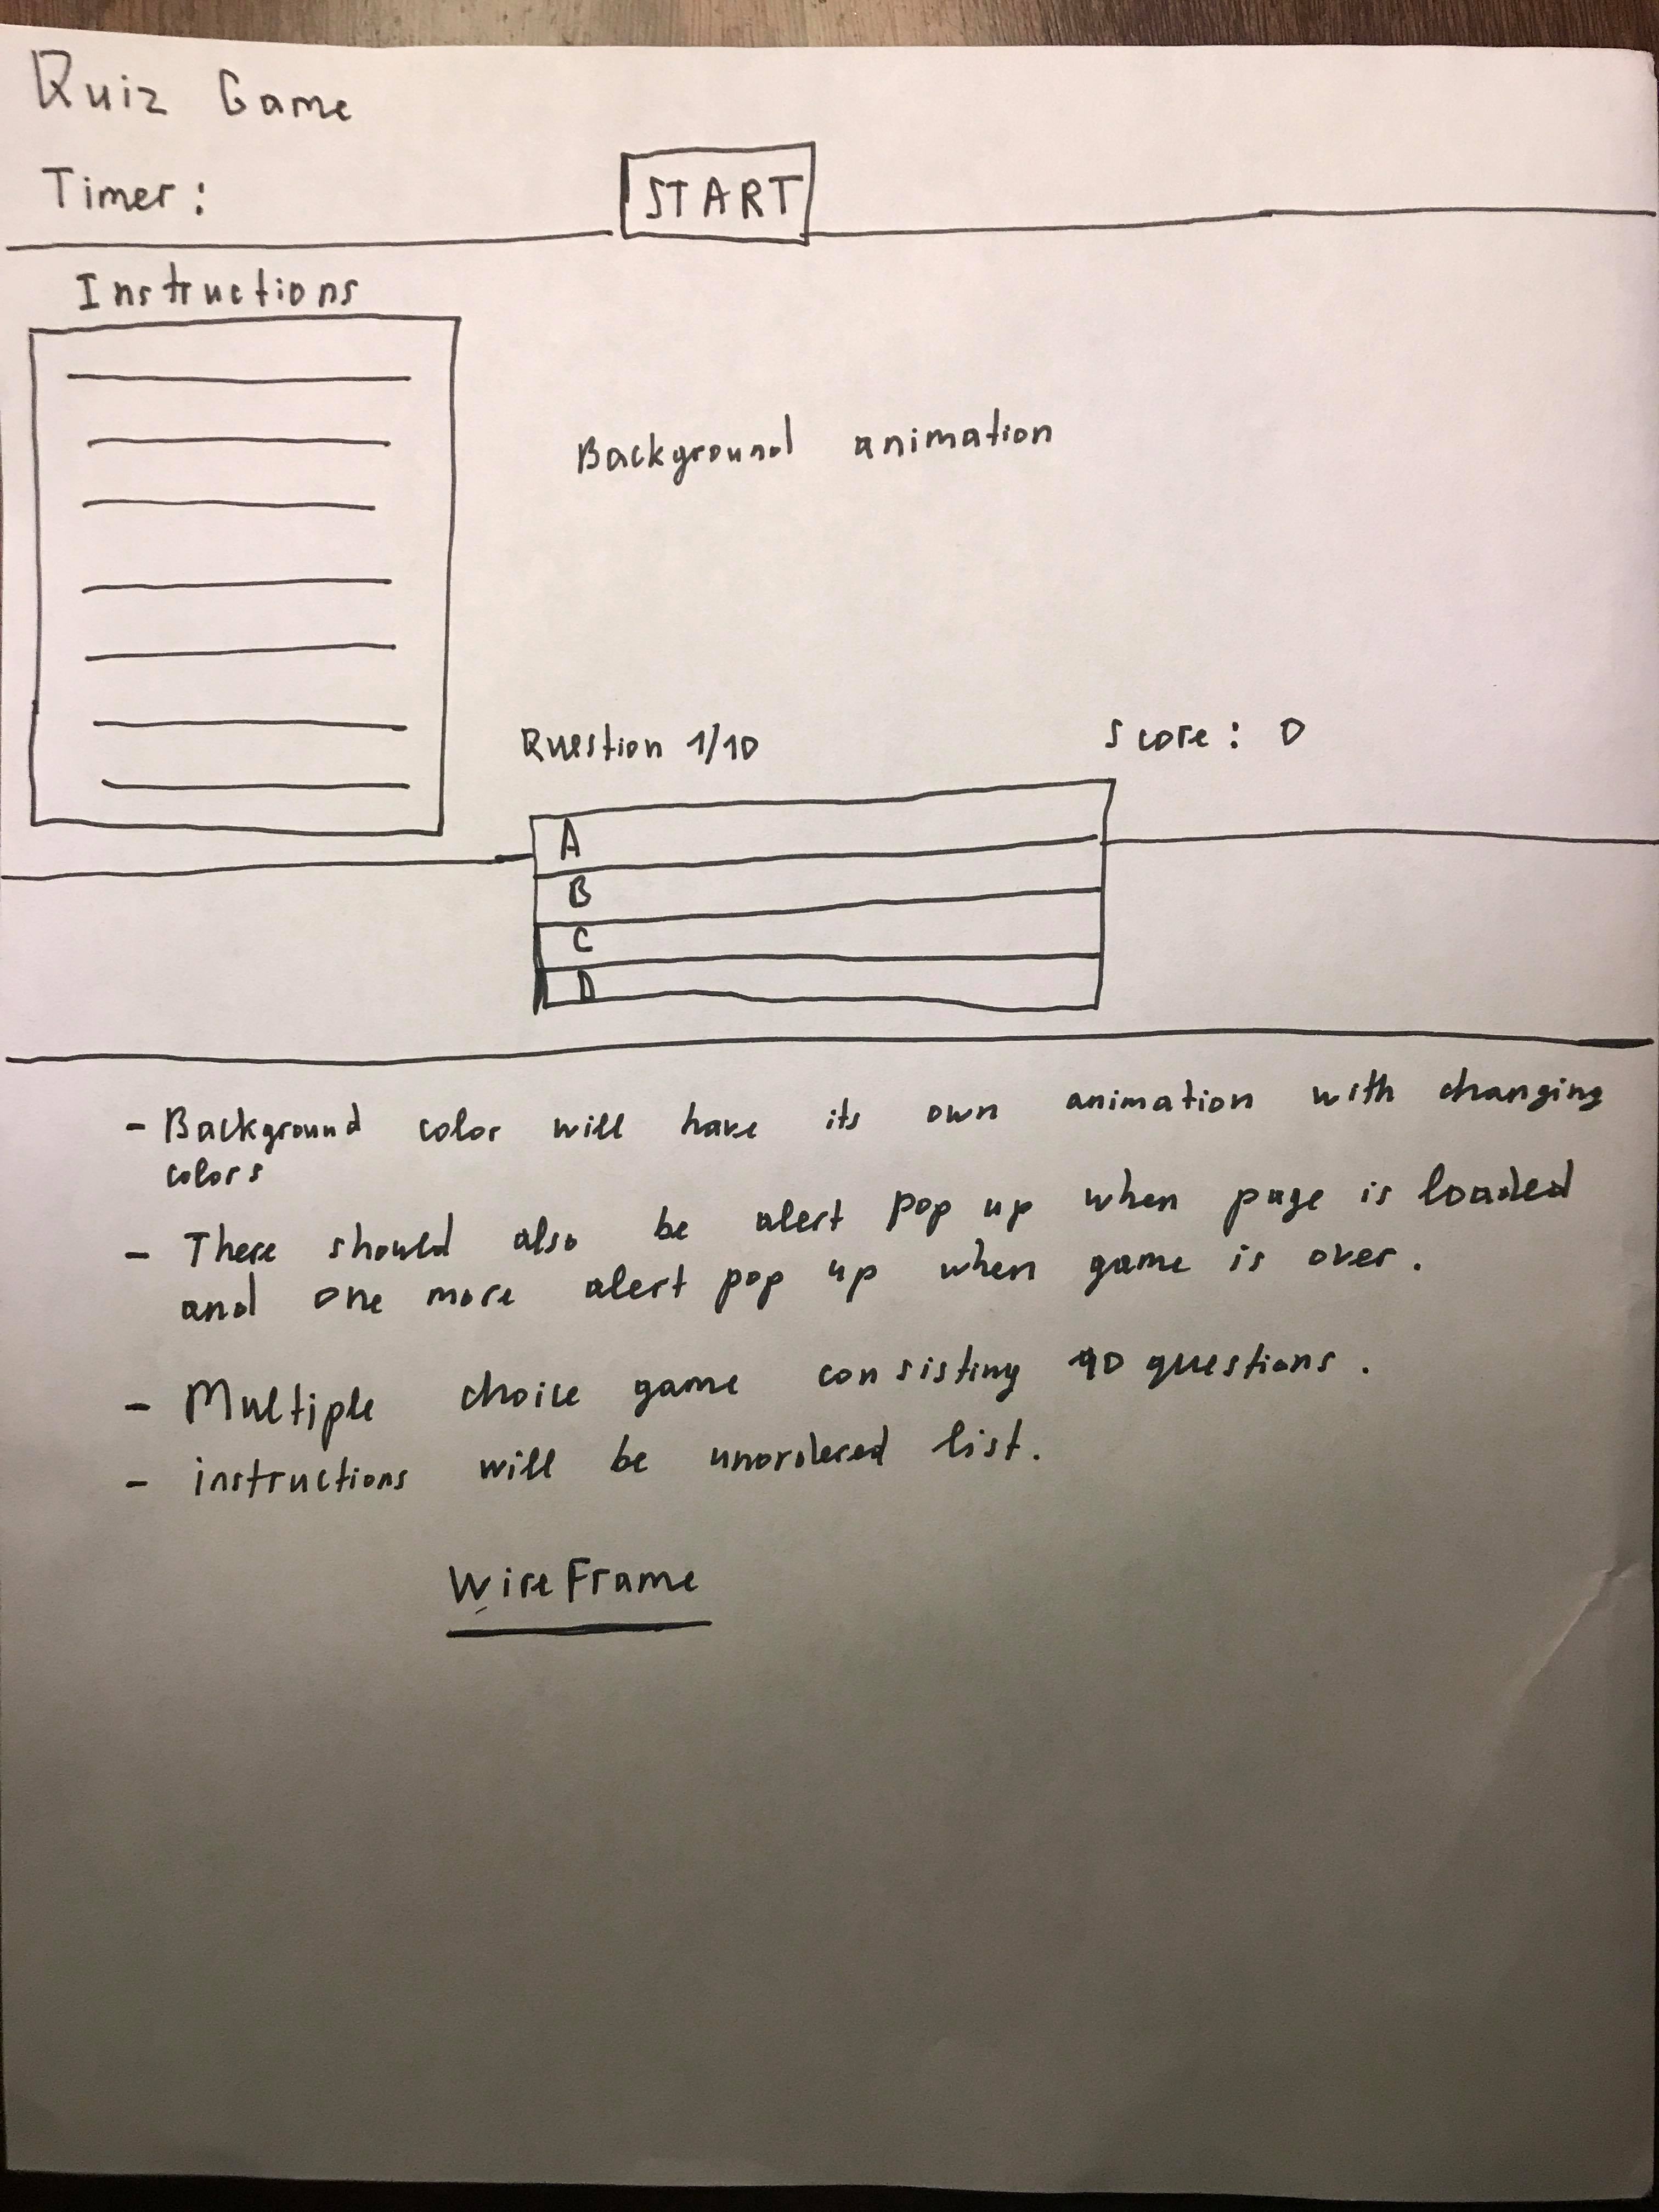 Quiz Game
Timer:
START
Instructions
Background animation
Question 1/10
Score: 0
A
B
C
D
- Background color will have its own animation with changing
colors
- There should also be alert pop up when page is loaded
and one more alert pop up when game is over.
- Multiple choice game consisting 10 questions.
- instructions will be unordered list.
WireFrame